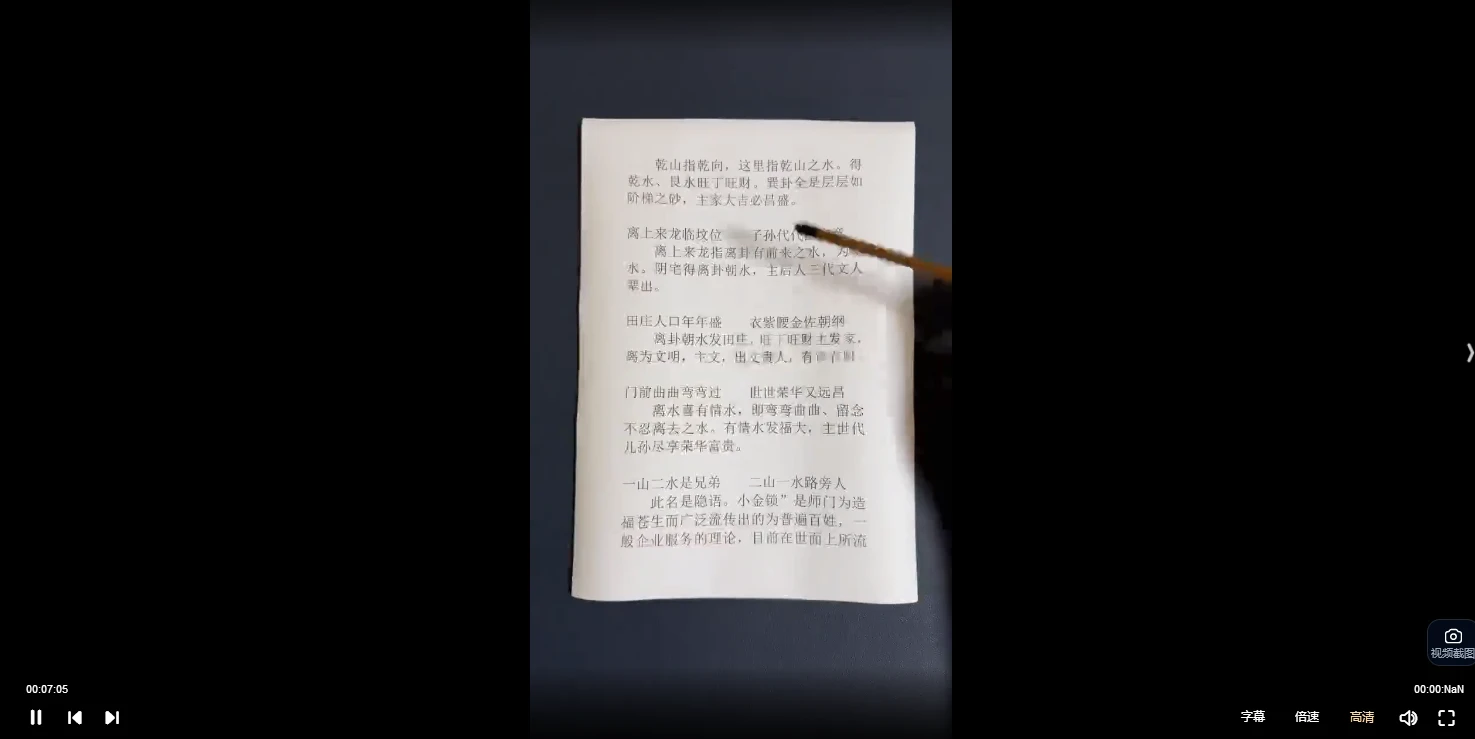 乾山指乾向，这里指乾山之水。得
乾水、艮水旺丁旺财。巽卦全是层层如
阶梯之砂，主家大吉必昌盛。
离上来龙临坟位 子孙代代
离上来龙指离卦有前来之水，为
水。阴宅得离卦朝水，主后人三代文人
辈出。
田庄人口年年盛 衣紫腰金佐朝纲
离卦朝水发田庄，旺丁旺财主发家，
离为文明，主文，出文贵人，有
门前曲曲弯弯过 世世荣华又远昌
离水喜有情水，即弯弯曲曲、留念
不忍离去之水。有情水发福大，主世代
儿孙尽享荣华富贵。
一山二水是兄弟 二山一水路旁人
此名是隐语。小金锁”是师门为造
福苍生而广泛流传出的为普遍百姓，一
般企业服务的理论，目前在世面上所流
视频截图
00:07:05
00:00:NaN
字幕 倍速 高清